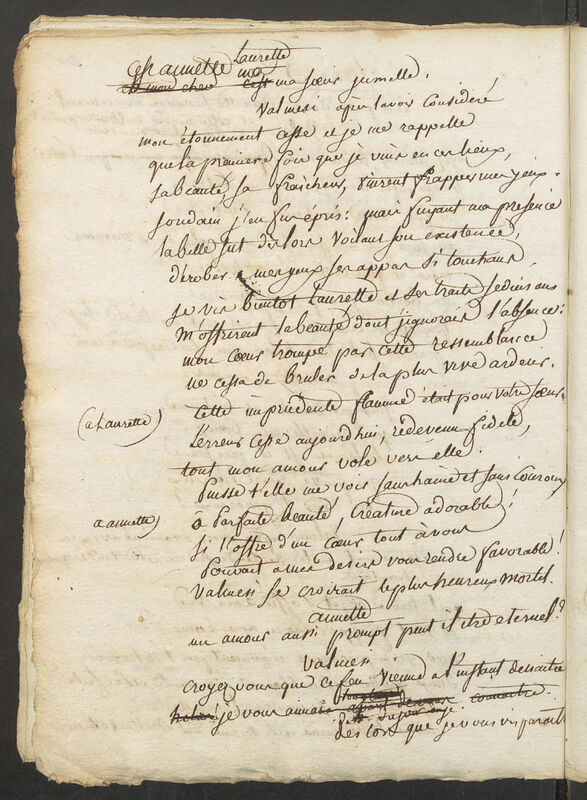 Laurette
C'est annette ma
est mon cher c'est ma sœur jumelle.
Valmesi après lavoir considéré
mon étonnement cesse et je me rappelle
que la premiere fois que je vins en ces lieux,
sa beauté, sa fraicheur, vinrent frapper mes yeux.
soudain j'en fus épris: mais fuyant ma presence
la belle fut des lors voilant son existence,
dérober a mes yeux ses appas si touchans,
je vis bientot Laurette et ses traits seduisans
m'offrirent la beauté dont j'ignorais l'absence:
mon cœur trompé par cette ressemblance
ne cessa de bruler de la plus vive ardeur.
(a Laurette)
Cette imprudente flamme était pour votre sœur.
L'erreur cesse aujourdhui, redevenu fidele,
tout mon amour vole vers elle.
Puisse t'elle me voir sans haine et sans couroux
a annette)
o Parfaite beauté, Créature adorable!
si l'offre d'un cœur tout à vous
Pouvait a mes desirs vous rendre favorable!
Valmesi se croirait le plus heureux mortel.
annette
un amour aussi prompt peut il etre eternel?
Valmesi
croyez vous que ce feu vienne a l'instant de naitre
je vous aimais avant de vous connaitre.
des lors que je vous vis paraitre